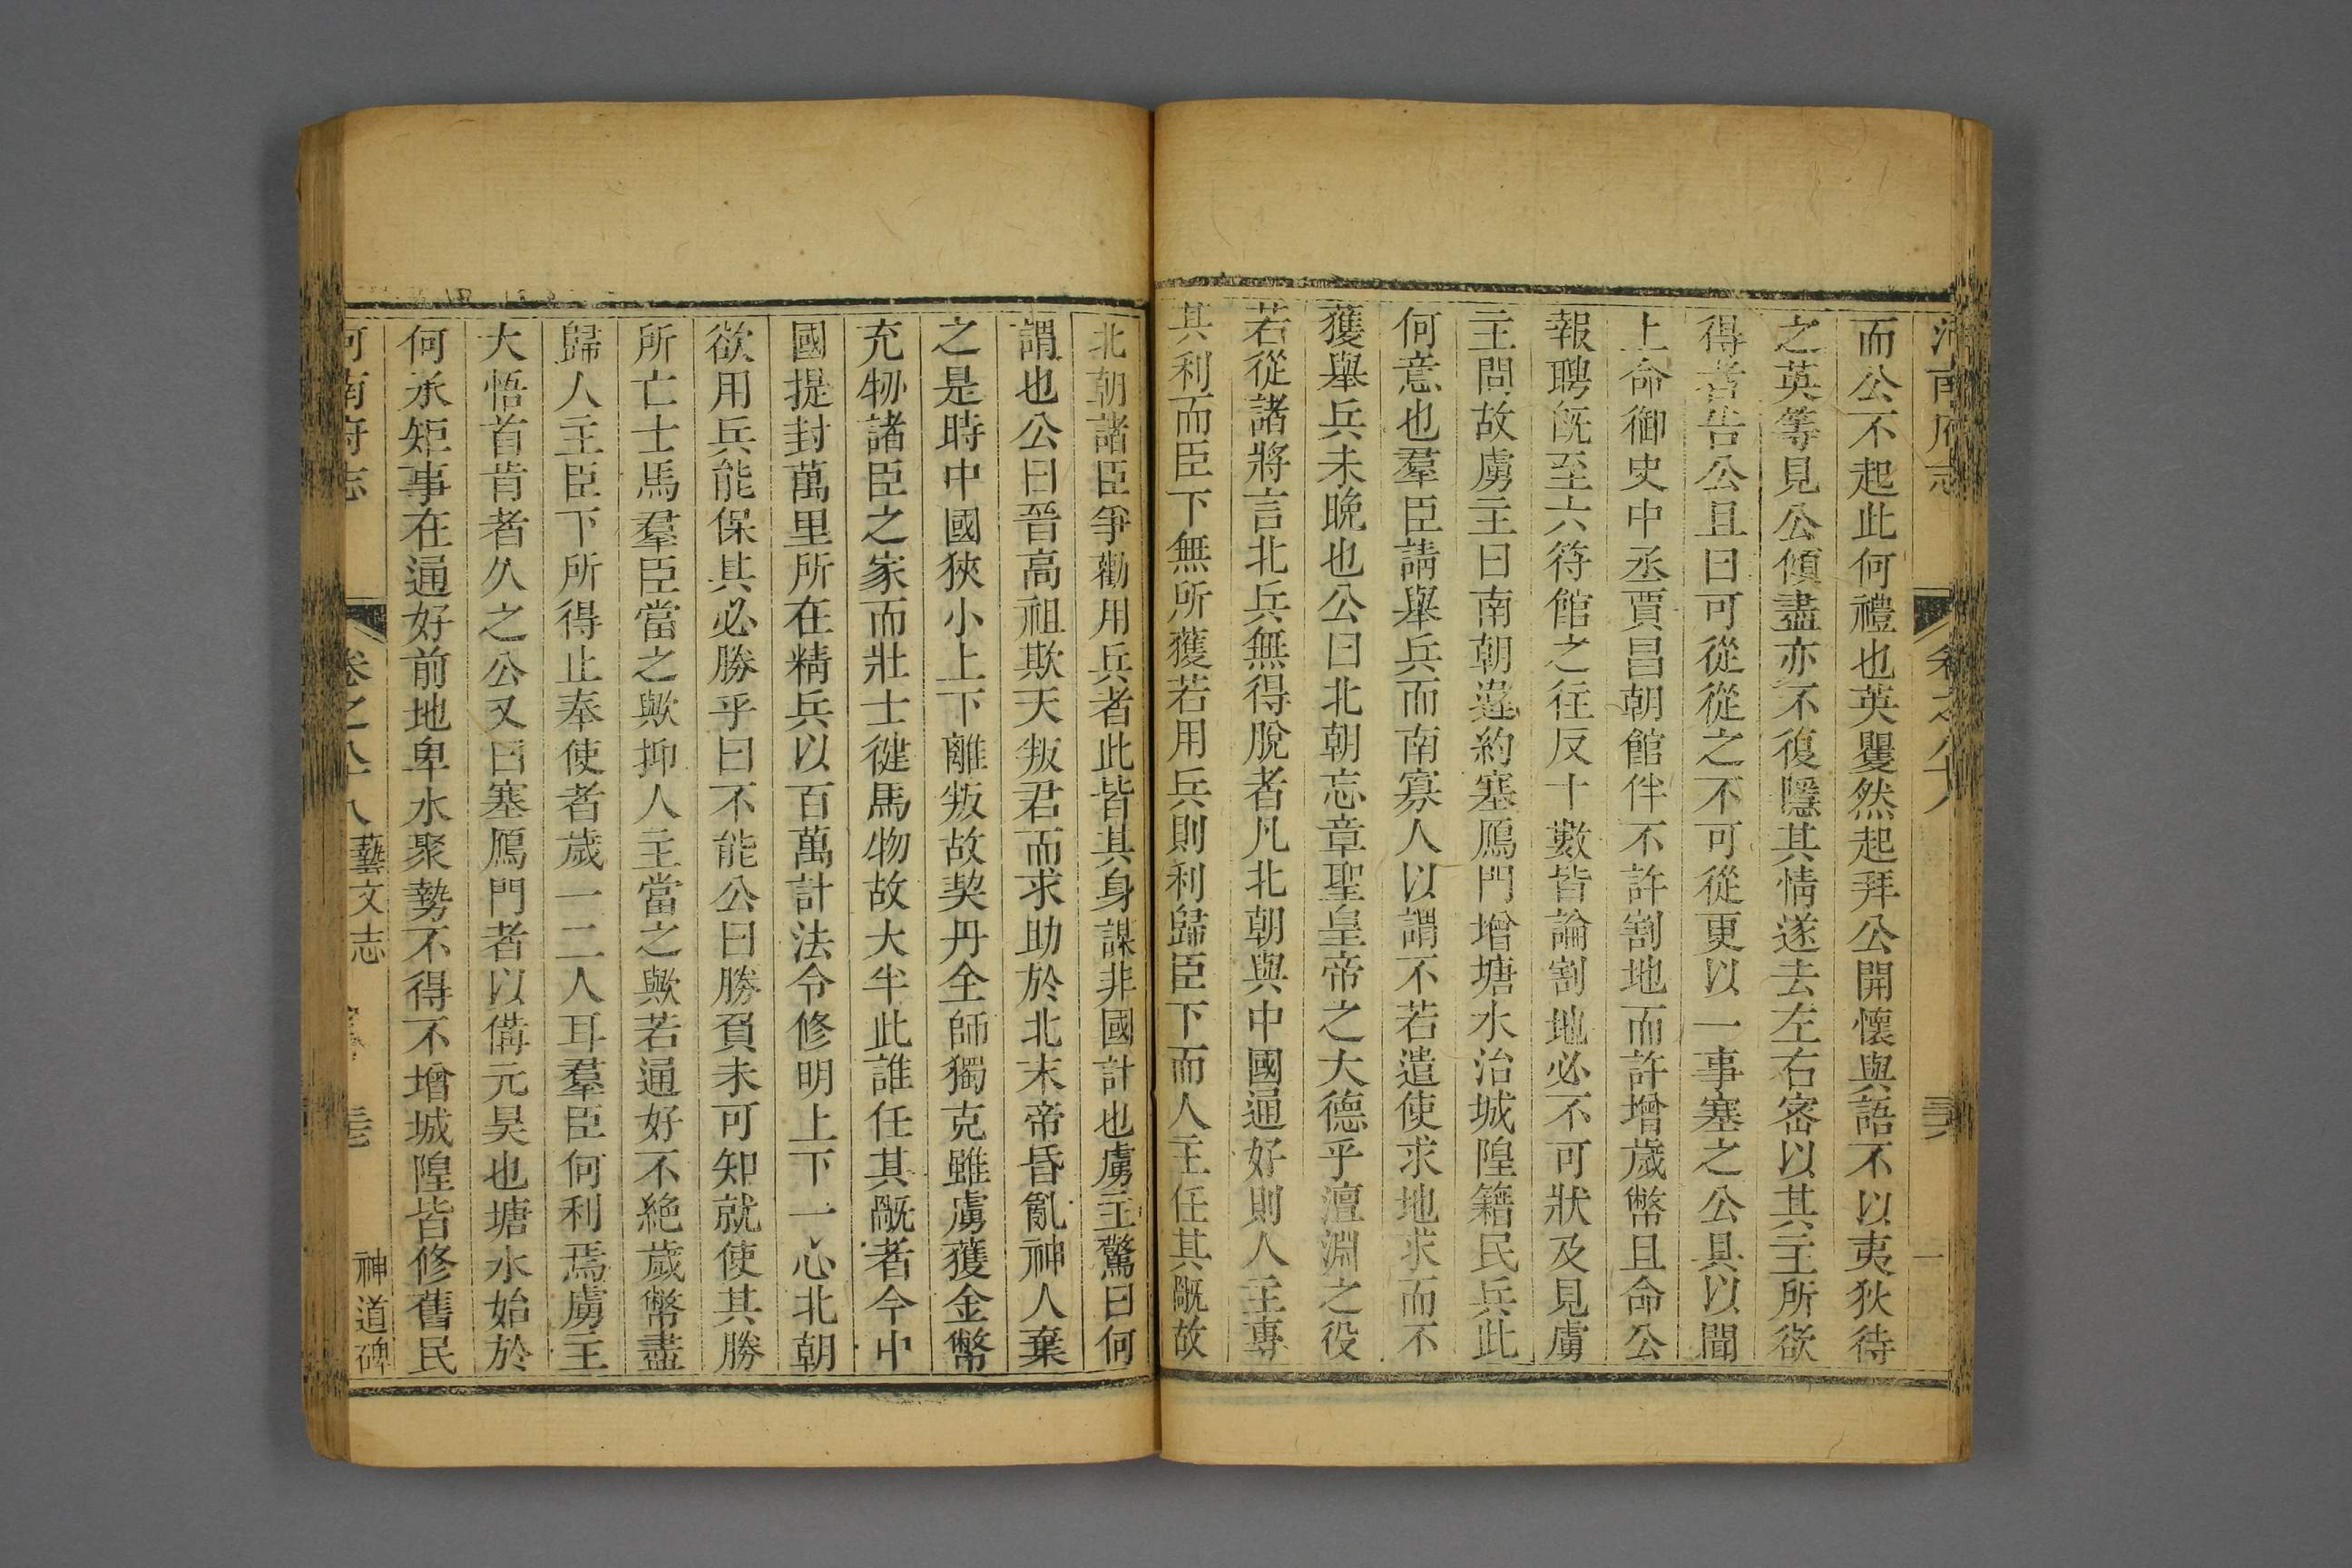 河南府志 卷之八十八 三六 一
而公不起此何禮也英矍然起拜公開懷與語不以夷狄待
之英等見公傾盡亦不復隱其情遂去左右密以其主所欲
得者告公且曰可從從之不可從更以一事塞之公具以聞
上命御史中丞賈昌朝館伴不許割地而許增歲幣且命公
報聘旣至六符館之往反十數皆論割地必不可狀及見虜
主問故虜主曰南朝違約塞鴈門增塘水治城隍籍民兵此
何意也羣臣請舉兵而南寡人以謂不若遣使求地求而不
獲舉兵未晚也公曰北朝忘章聖皇帝之大德乎澶淵之役
若從諸將言北兵無得脫者凡北朝與中國通好則人主專
其利而臣下無所獲若用兵則利歸臣下而人主任其禍故
北朝諸臣爭勸用兵者此皆其身謀非國計也虜主驚曰何
謂也公曰晉高祖欺天叛君而求助於北末帝昏亂神人棄
之是時中國狹小上下離叛故契丹全師獨克雖虜獲金幣
充牣諸臣之家而壯士徤馬物故大半此誰任其禍者今中
國提封萬里所在精兵以百萬計法令修明上下一心北朝
欲用兵能保其必勝乎曰不能公曰勝負未可知就使其勝
所亡士馬羣臣當之歟抑人主當之歟若通好不絶歲幣盡
歸人主臣下所得止奉使者歲一二人耳羣臣何利焉虜主
大悟首肯者久之公又曰塞鴈門者以備元昊也塘水始於
何承矩事在通好前地卑水聚勢不得不增城隍皆修舊民
河南府志 卷之八十八 藝文志 神道碑